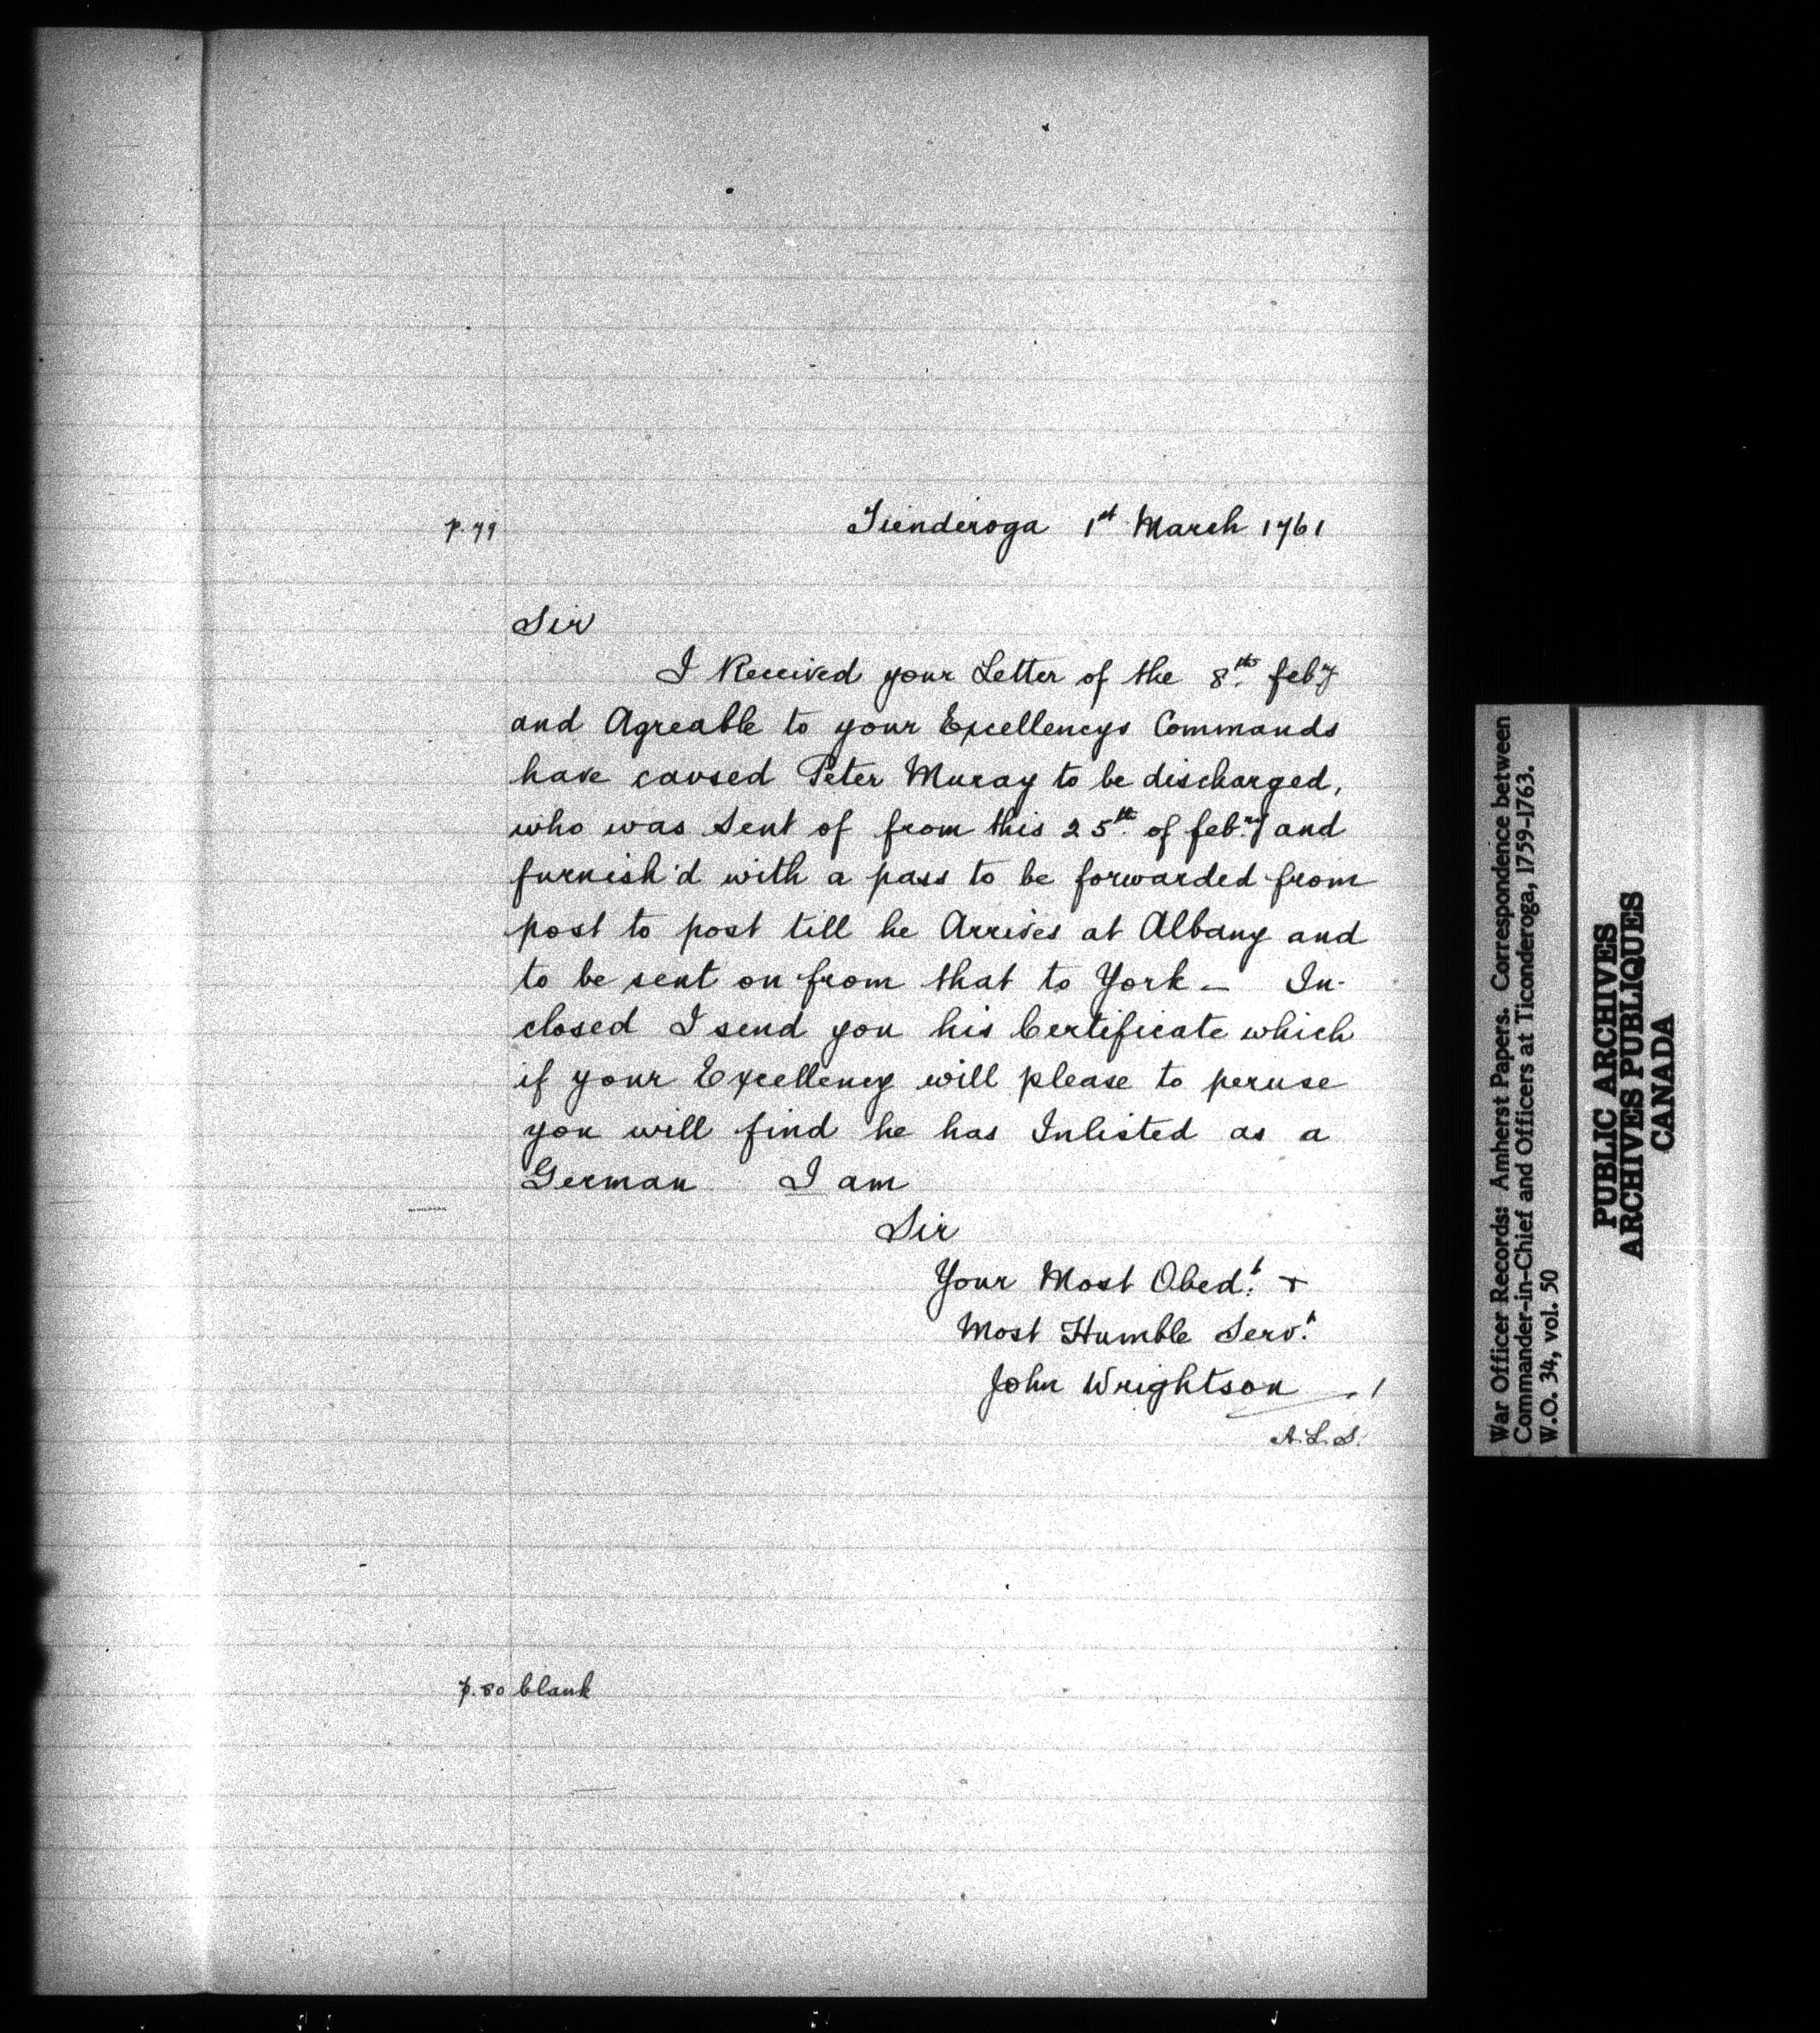 p. 79
Tienderoga 1st March 1761
Sir
I Received your Letter of the 8th. feby
and Agreable to your Excellencys Commands
have caused Peter Muray to be discharged,
who was sent of from this 25th. of feb.ry and
furnish'd with a pass to be forwarded from
post to post till he Arrives at Albany and
to be sent on from that to York — In-
closed I send you his Certificate which
if your Excellency will please to peruse
you will find he has Inlisted as a
German I am
Sir
Your Most Obed.t +
Most Humble Serv.t
John Wrightson
A.L.S.
p. 80 blank
War Officer Records: Amherst Papers. Correspondence between
Commander-in-Chief and Officers at Ticonderoga, 1759-1763.
W.O. 34, vol. 50
PUBLIC ARCHIVES
ARCHIVES PUBLIQUES
CANADA